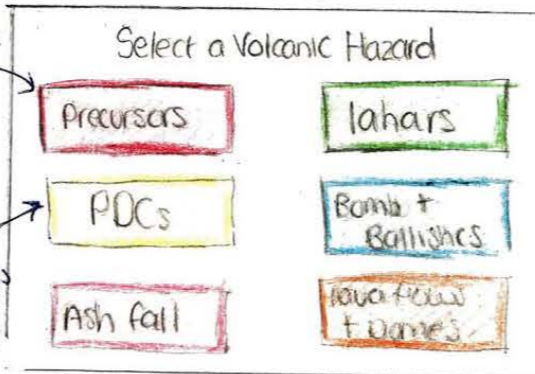 Select a Volcanic Hazard
Precursors
lahars
PDCs
Bomb +
Ballistics
Ash fall
lava flows
+ Domes